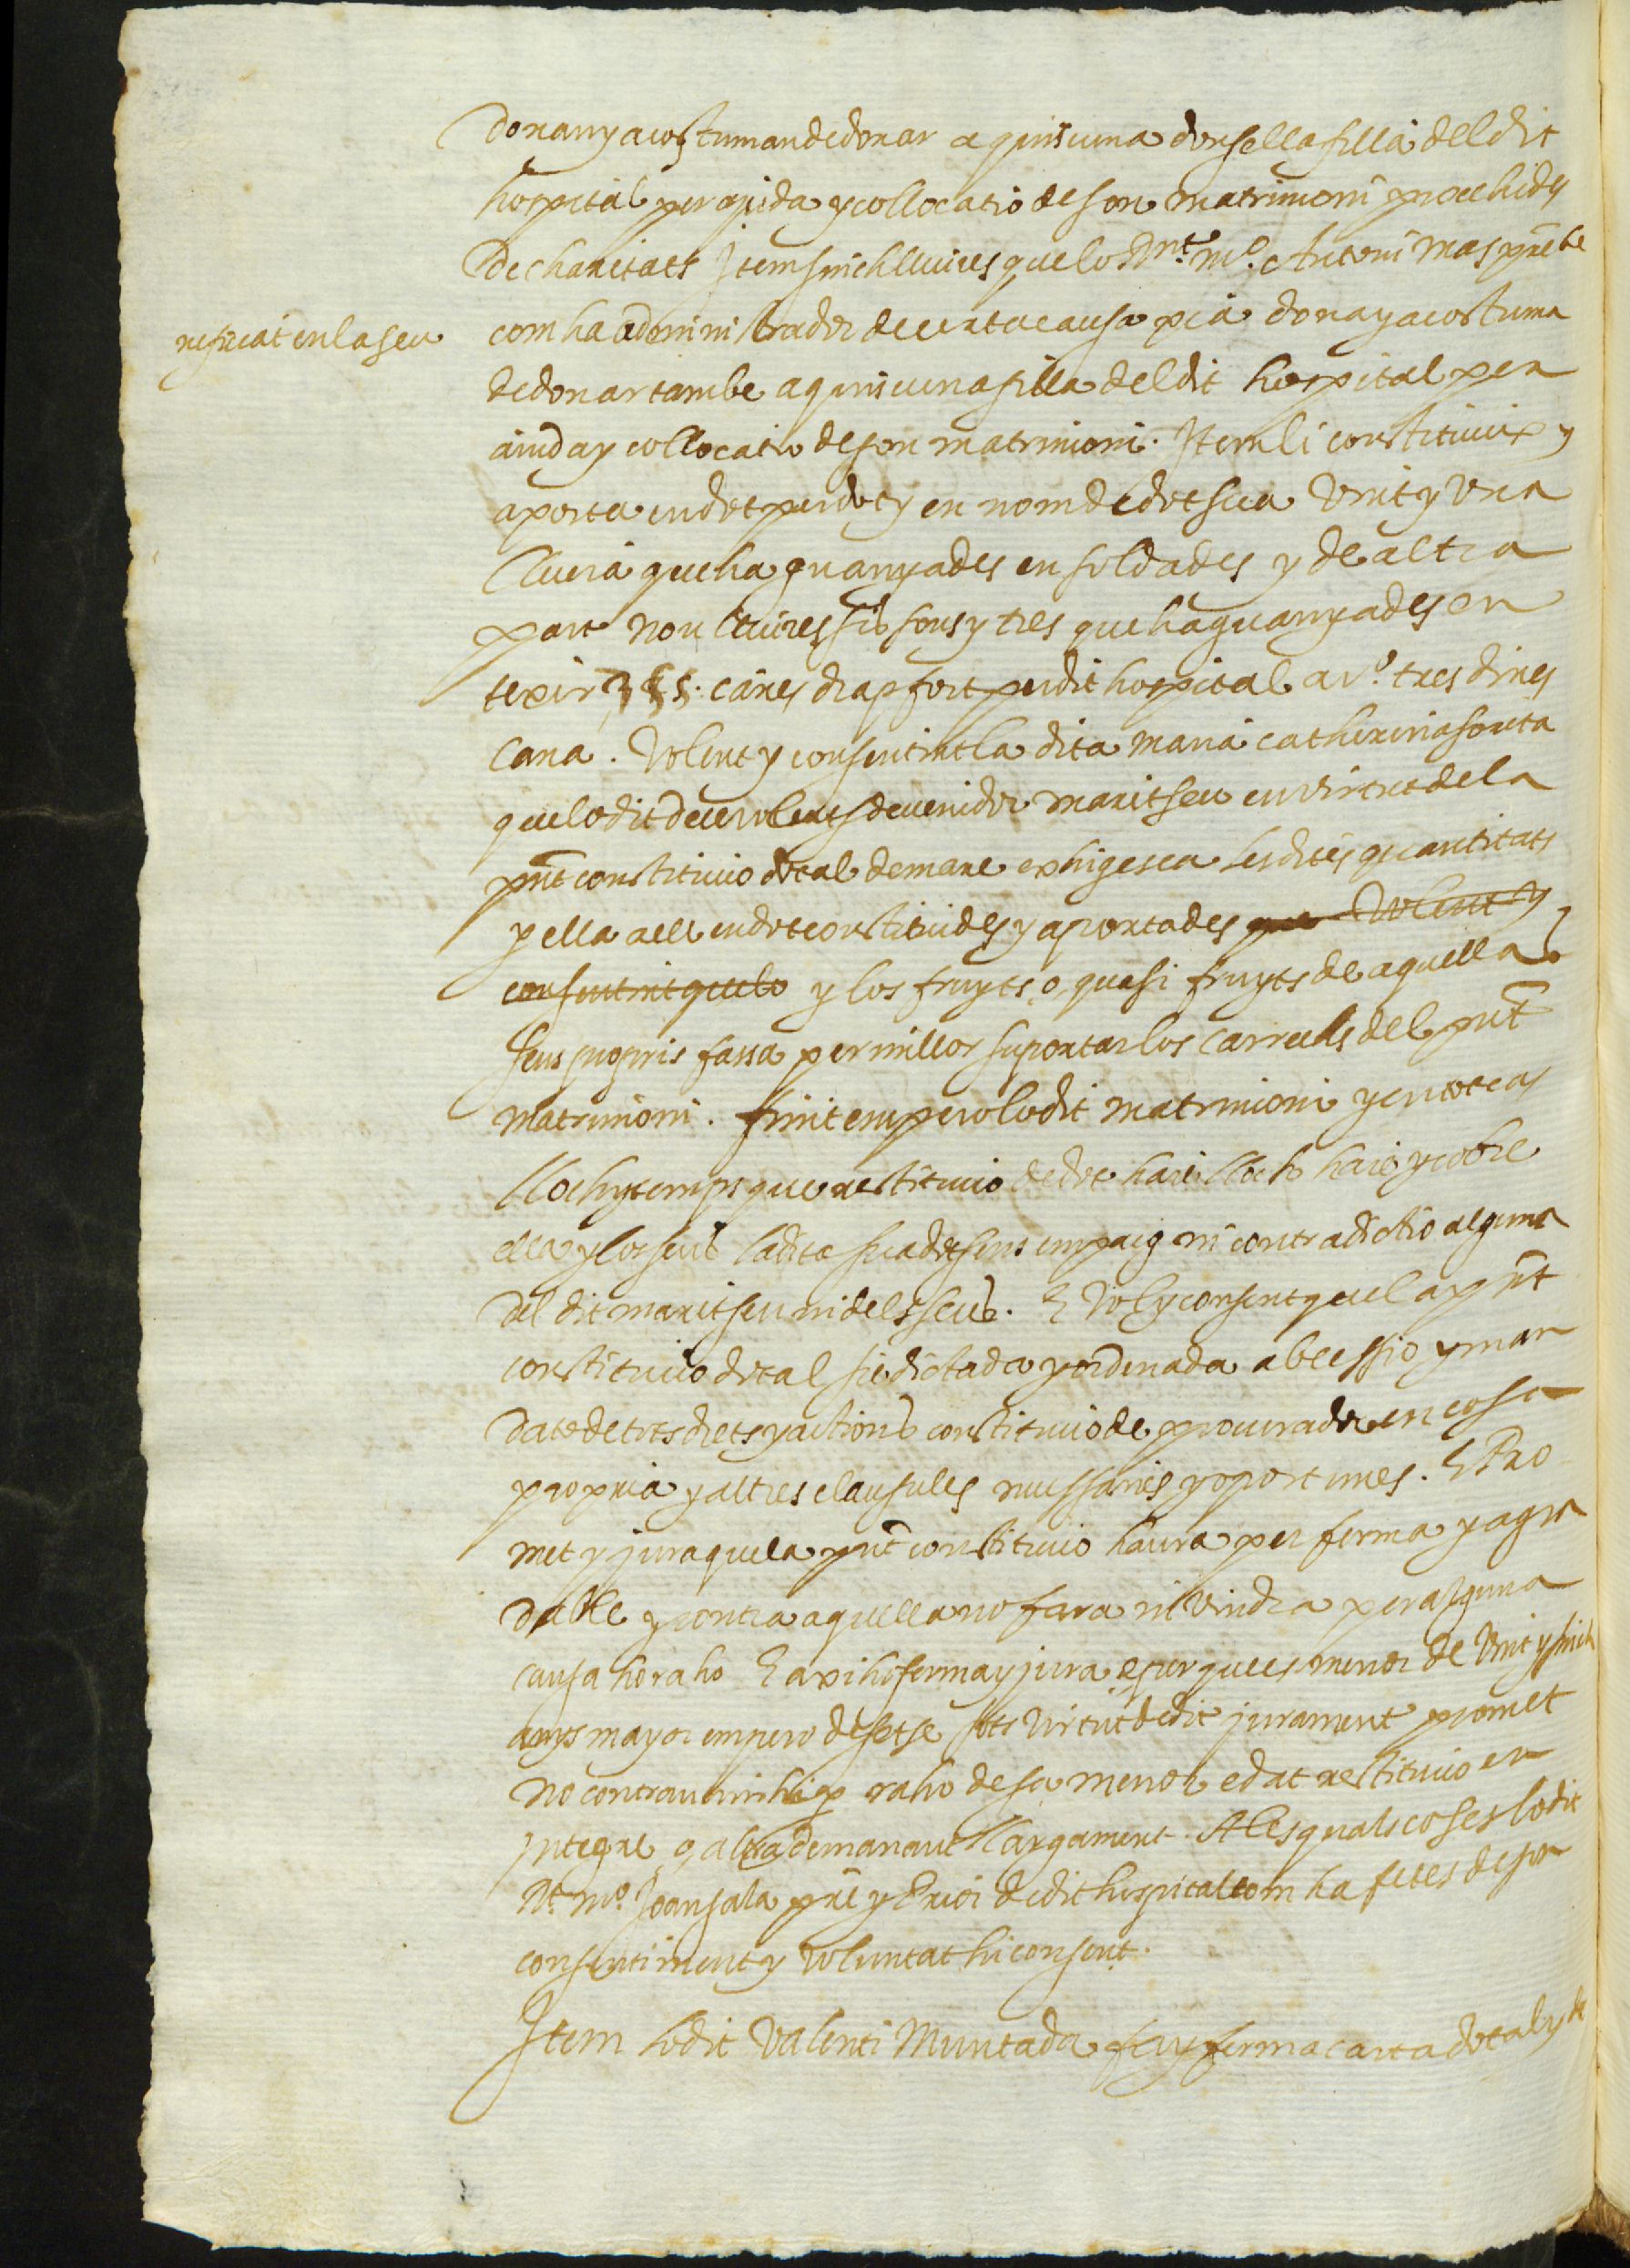 donan y acostuman de donar a quiscuna donsella filla del dit
hospital per ajuda y collocatio de son matrimoni procehides
de charitats Item sinch lliures que lo Rnt. mo. Antoni Mas pre be
resident en la seu
com ha administrador de certa causa pia dona y acostuma
de donar tambe a quiscuna filla del dit hospital per
aiuda y collocatio de son matrimoni. Item li constituiix y
aporta en dot per dot y en nom de dot sua vint y una
lliura que ha guanyades en soldades y de altra
part nou lliures sis sous y tres que ha guanyades en
texir canes drap fort per dit hospital a ro. tres dines
cana. Volent y consentint la dita Maria Catherina
que lo dit esdevenidor marit seu en virtut de la
pnt constituio dotal demane exhigesca lesdites quantitats
p ella a ell en dot constituides y aportades que Volent y
consentint que lo y los fruyts o quasi fruyts de aquella
seus propris fassa per millor suportar los carrechs del pnt
matrimoni. finit empero lo dit matrimoni y en tot cas
lloch y temps que restituio de dot haie lloch haie y cobre
ella y los seus la dita sua dot sens empaig ni contradictio alguna
del dit marit seu ni dels seus. E vol y consent que la pnt
constituio dotal sie dictada y ordenada ab cessio y man
dato de tots drets y actions constituio de procurador en cosa
propria y altres clausules necessaries y oportunes. E Pro
met y jura que la pnt constituio haura per ferma y agra
dable y contra aquella no fara ni vindra per alguna
causa ho raho E axi ho ferma y jura e perque es menor de vint y sinch
anys mayor empero de setse sots virtut de dit jurament promet
no contravenir hi p raho de sa menor edat restituio en
integre o altra demanant llargament. A les quals coses lo dit
Rt. mo. Joan Sala pre y Prior de dit hospital com ha fetes de son
consentiment y voluntat hi consent.
Item lo dit Valenti Muntada fa y ferma carta dotal y de